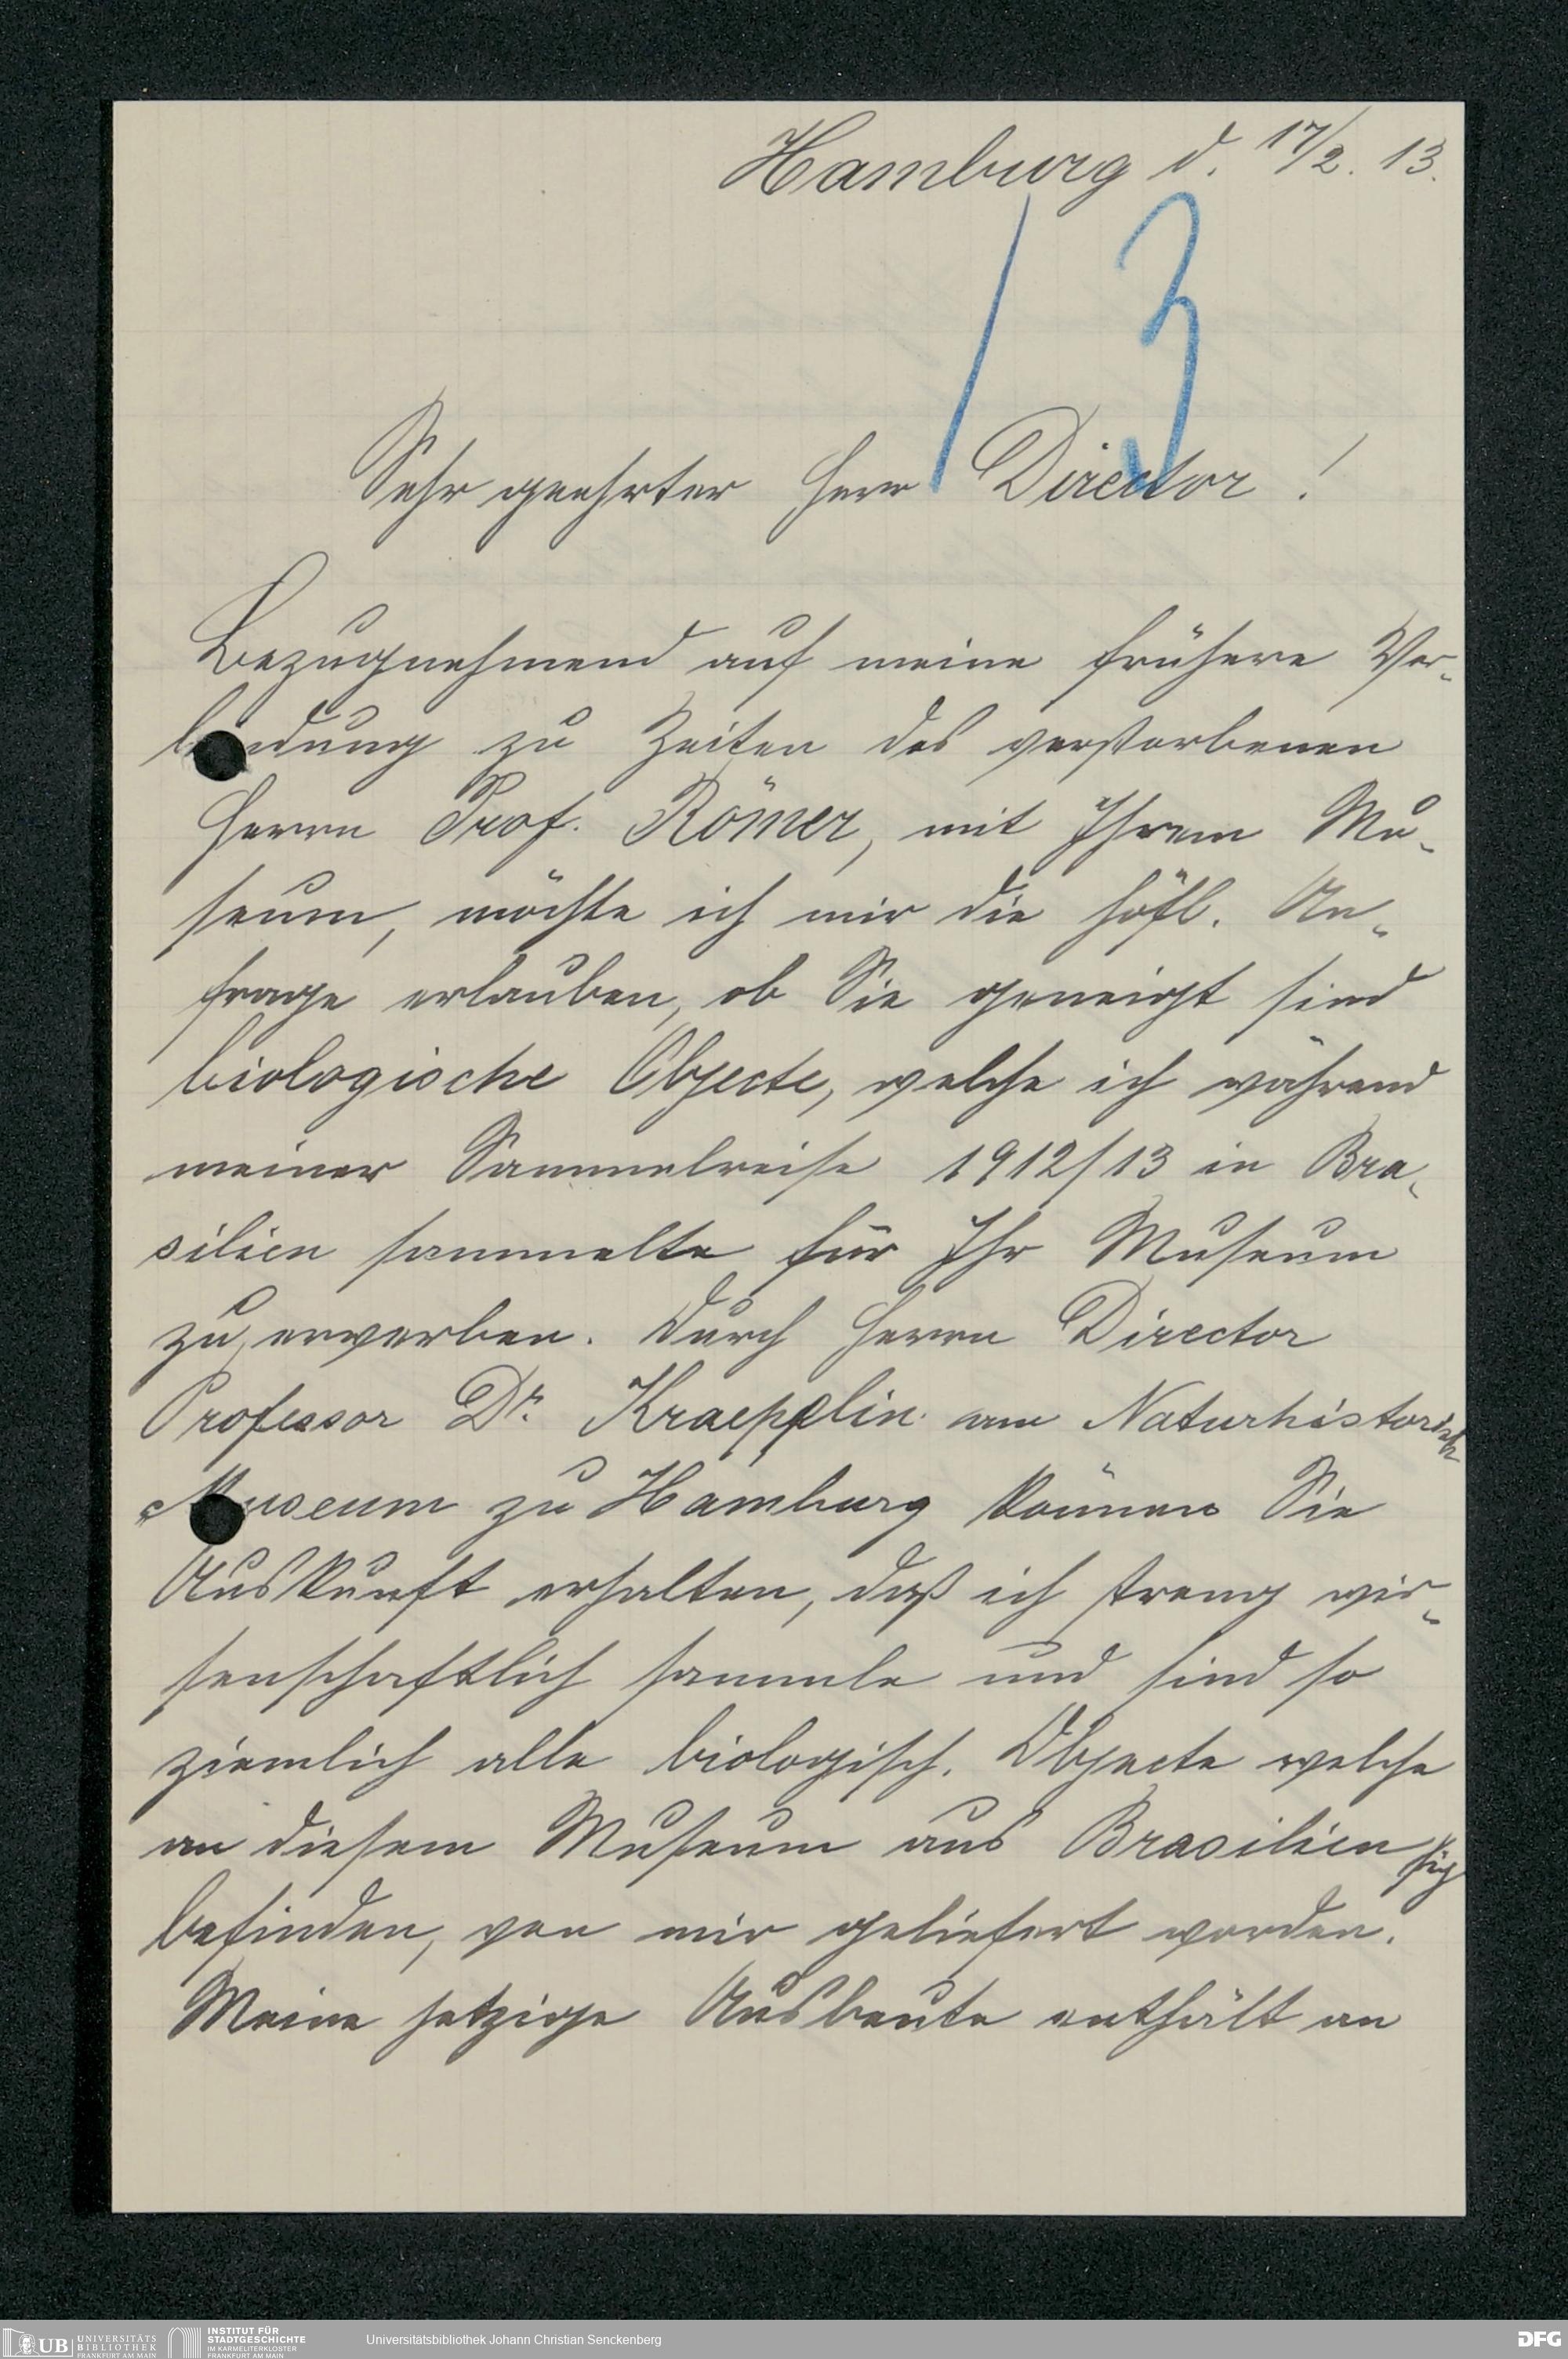 Hamburg d. 17/2. 13.
13
Sehr geehrter Herr Director!
Bezugnehmend auf meine frühere Ver-
bindung zu Zeiten des verstorbenen
Herrn Prof. Römer, mit Ihrem Mu-
seum, möchte ich mir die höfl. An-
frage erlauben, ob Sie geneigt sind
biologische Objecte, welche ich während
meiner Sammelreise 1912/13 in Bra-
silien sammelte für Ihr Museum
zu erwerben. Durch Herrn Director
Professor Dr. Kraepplin am Naturhistorisch
Museum zu Hamburg können Sie
Auskunft erhalten, daß ich streng wis-
senschaftlich sammle und sind so
ziemlich alle biologisch. Objecte welche
an diesem Museum aus Brasilien sich
befinden, von mir geliefert worden.
Meine jetzige Ausbeute enthält an
UB UNIVERSITÄTS
BIBLIOTHEK
FRANKFURT AM MAIN
INSTITUT FÜR
STADTGESCHICHTE
IM KARMELITERKLOSTER
FRANKFURT AM MAIN
Universitätsbibliothek Johann Christian Senckenberg
DFG